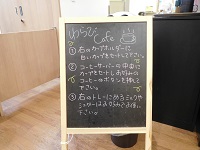 わらび
Cafe
① 右のカップホルダーに
白いカップをセットして下さい。
② コーヒーサーバーの中央に
カップをセットしお好みの
コーヒーのボタンを押して
下さい。
③ 右のトレーにあるミルクや
シュガーはお好みでお使い
下さい。